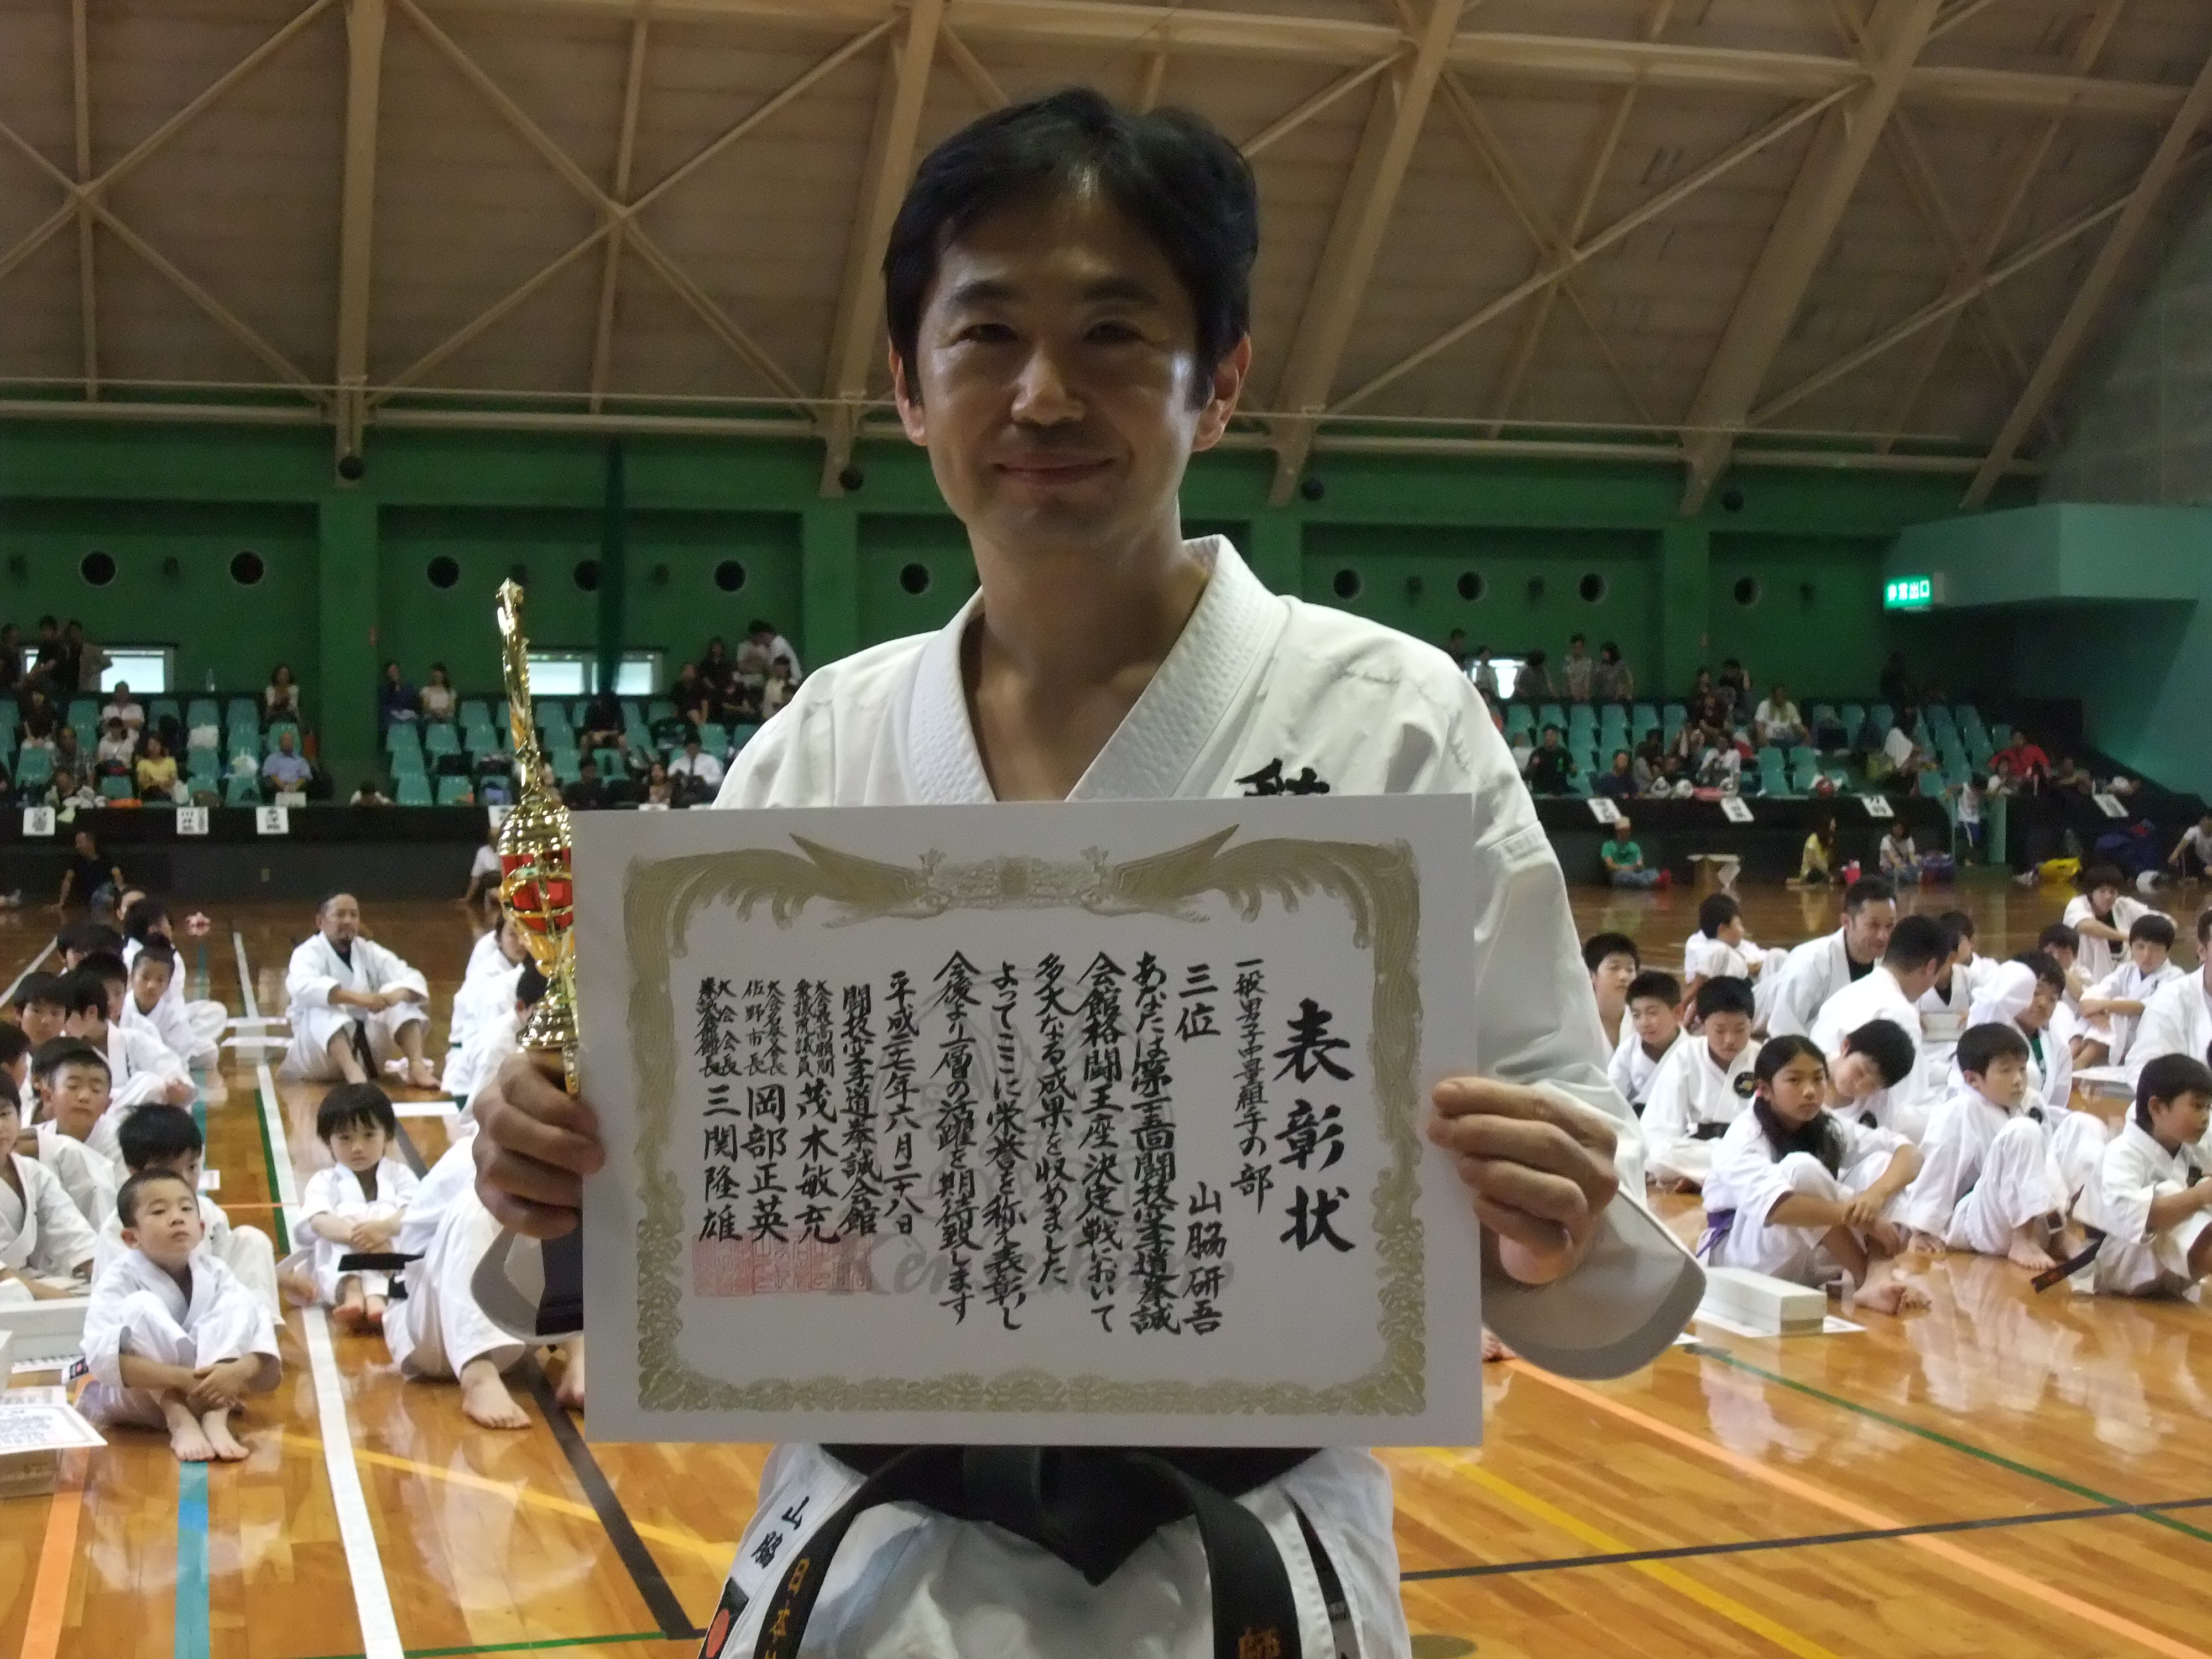 表彰状
一般男子中量組手の部
三位 山脇研吾
あなたは第十三回闘技空手道拳誠
会館格闘王座決定戦において
多大なる成果を収めました
よってここに栄誉を称え表彰し
今後より一層の活躍を期待致します
平成二十七年六月二十八日
闘技空手道拳誠会館
大会最高顧問
衆議院議員 茂木敏充
大会名誉会長
佐野市長 岡部正英
大会会長
三関隆雄
非常出口
山脇
日本
師